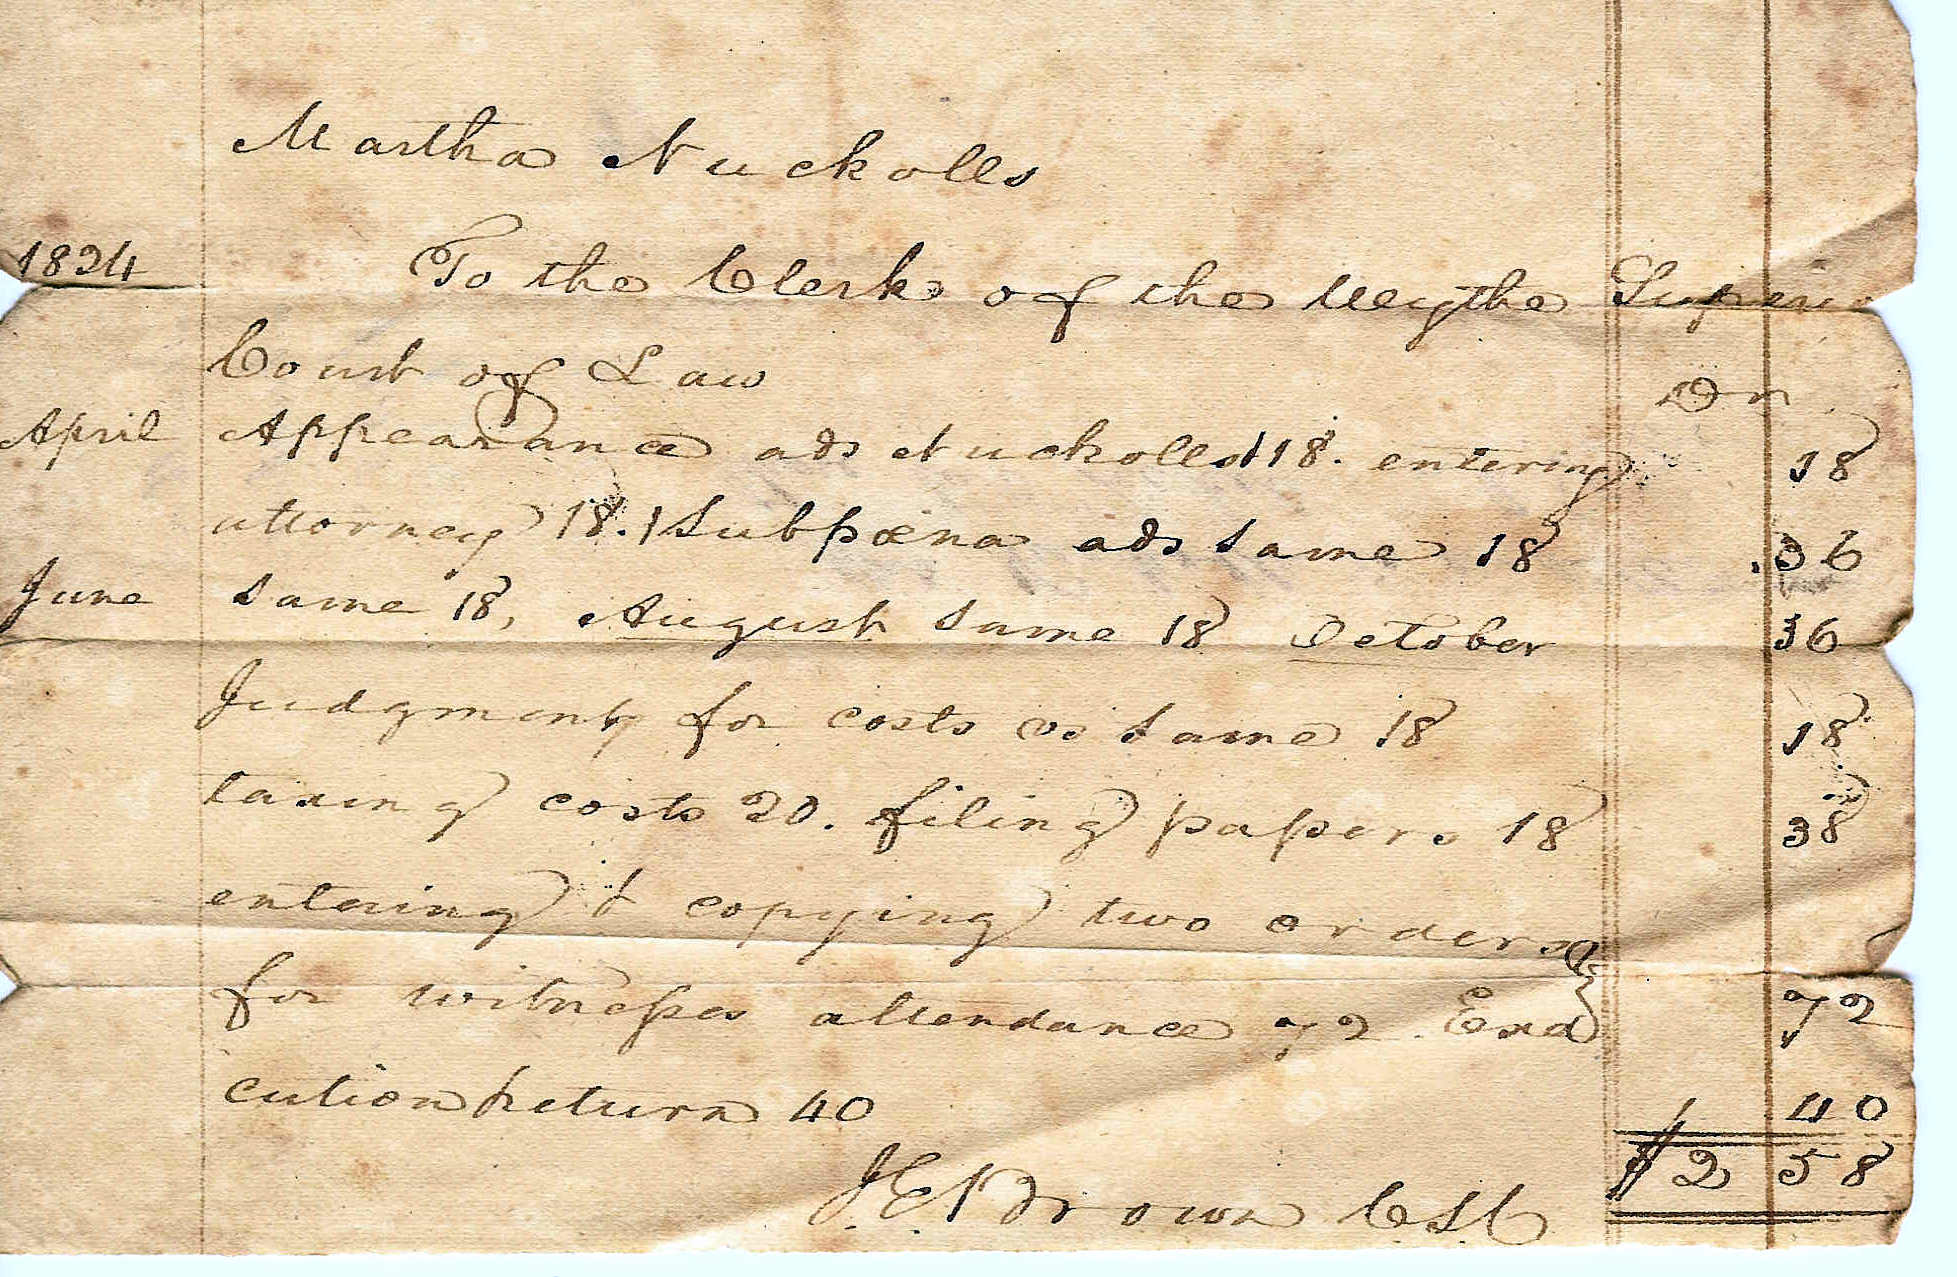 Martha Nuckolls
1824 To the Clerk of the Wythe Superior
Court of Law Dr
April Appearance ads Nuckolls 18. entering 18
attorney 18. 1 Subpœna ads same 18 .36
June same 18, August same 18 October 36
Judgment for costs vs same 18 18
taxing costs 20. filing papers 18 38
entering & copying two orders
for witnesses attendance 72 Exe 72
cution & return 40 40
$2 58
J. E. Brown CSC